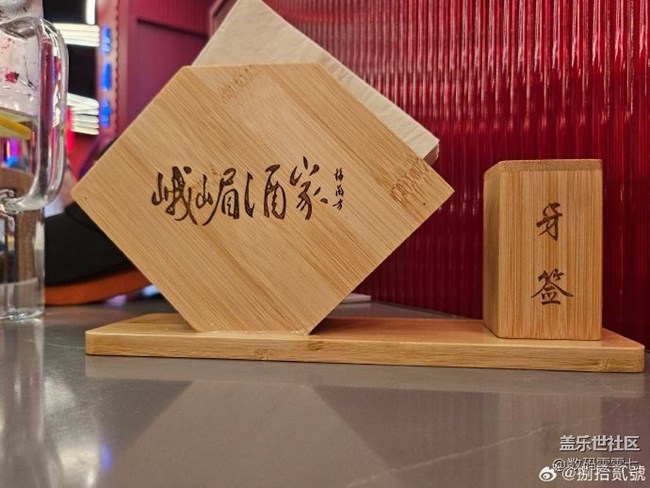 峨嵋酒家
梅兰芳
牙签
盖乐世社区
@数码零零七
@捌拾贰號